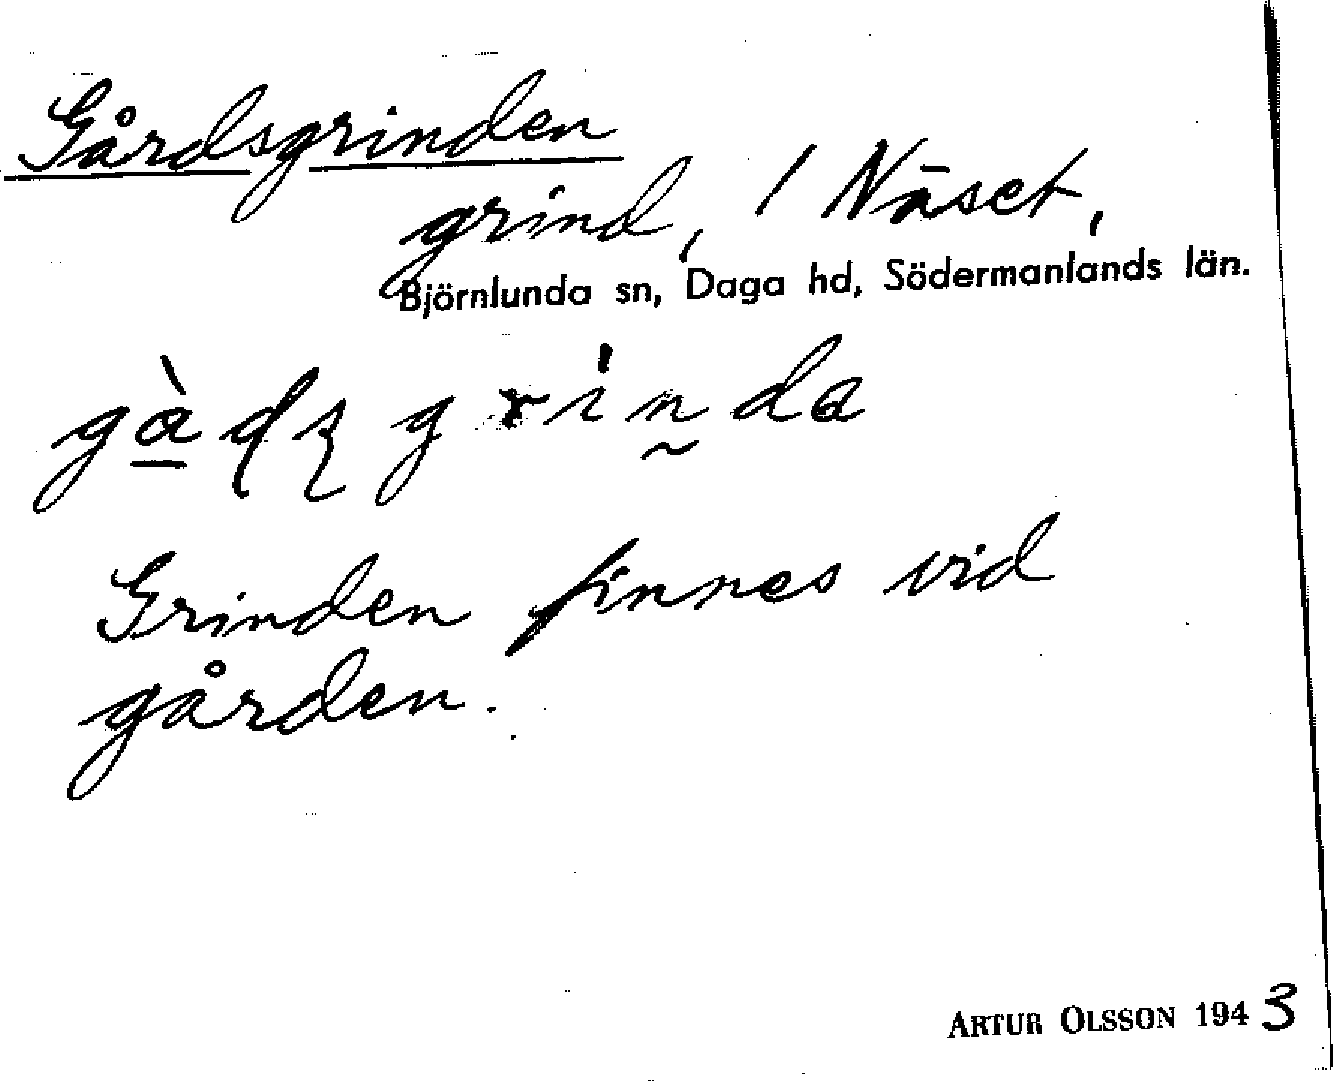 Gårdsgrinden
grind, 1 Näset,
Björnlunda sn, Daga hd, Södermanlands län.
Grinden finnes vid
gården.
ARTUR OLSSON 1943